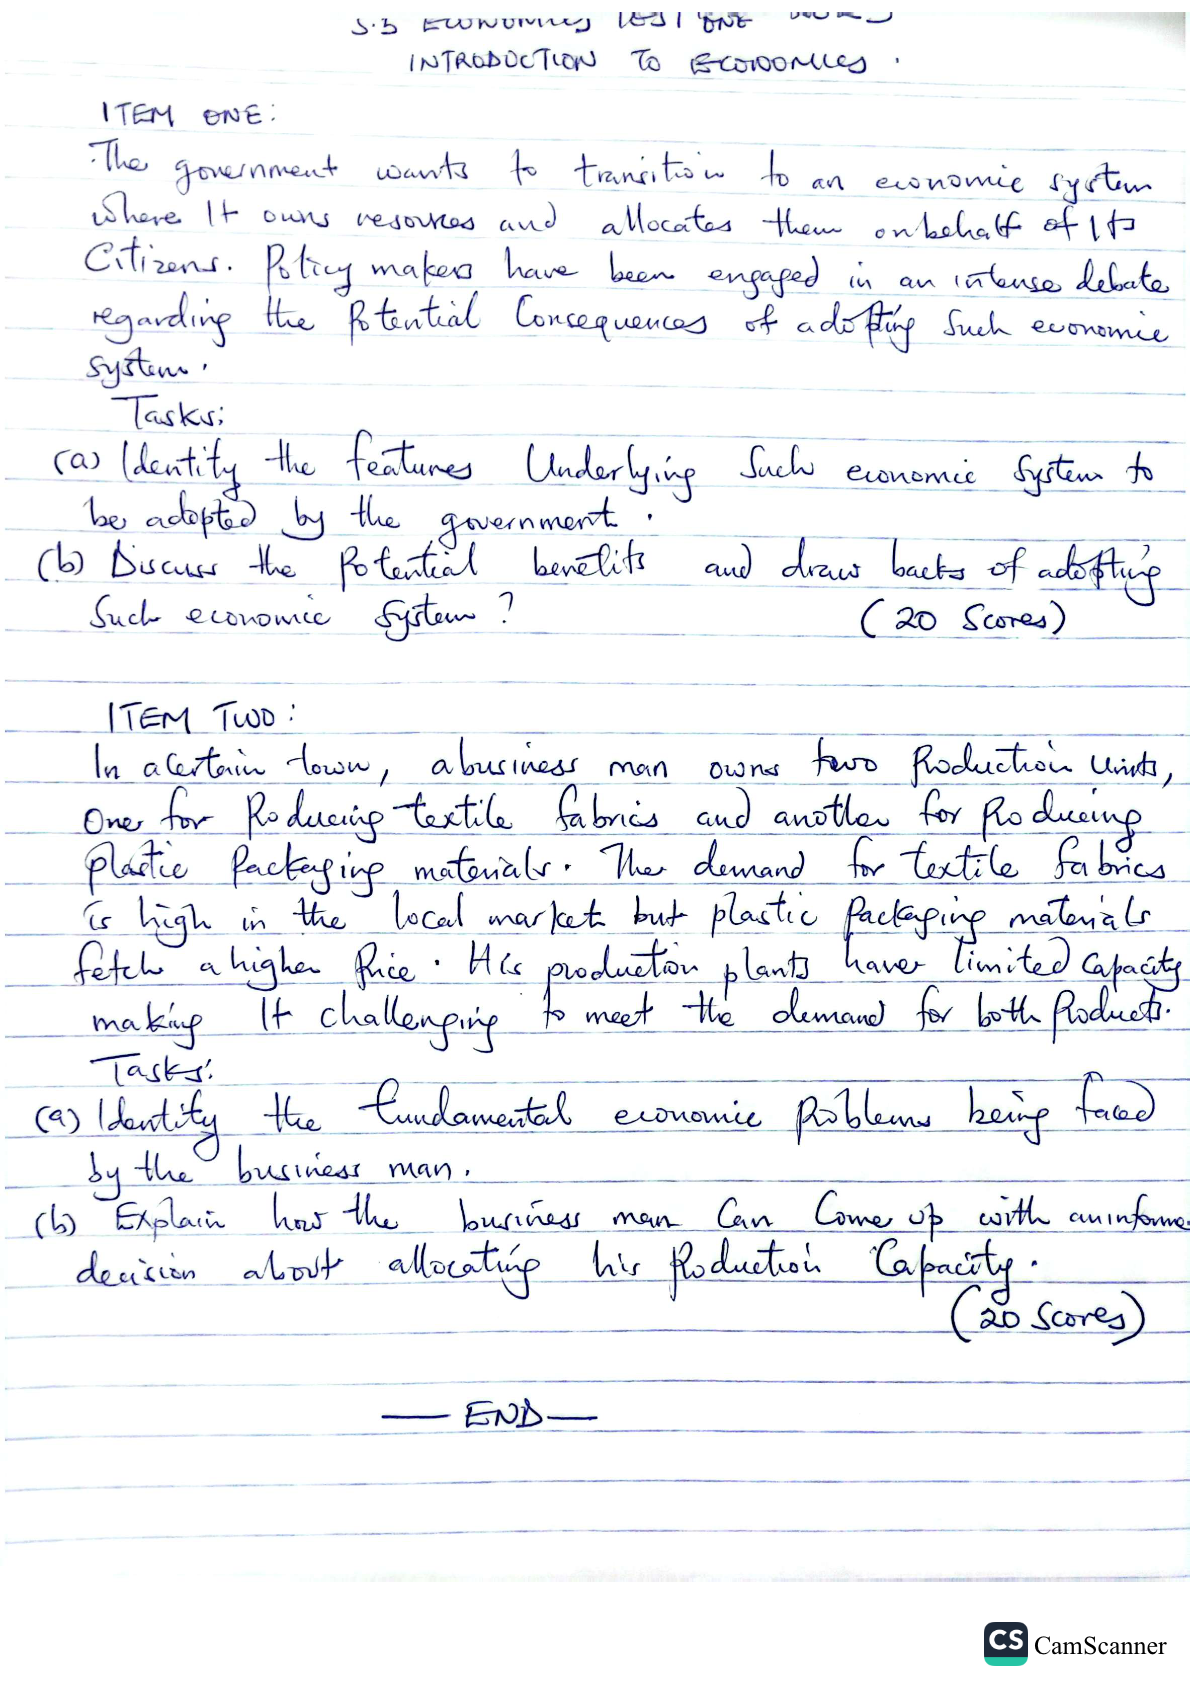 S.5 ECONOMICS TEST ONE
INTRODUCTION TO ECONOMICS.
ITEM ONE:
The government wants to transition to an economic system
where It owns resources and allocates them on behalf of Its
Citizens. Policy makers have been engaged in an intense debate
regarding the Potential Consequences of adopting Such economic
system.
Tasks;
(a) Identity the features Underlying Such economic System to
be adopted by the government.
(b) Discuss the Potential benefits and draw backs of adopting
Such economic System? (20 Scores)
ITEM TWO:
In a Certain town, a business man owns two Production Units,
One for Producing textile fabrics and another for Producing
plastic Packaging materials. The demand for textile fabrics
is high in the local market but plastic Packaging materials
fetch a higher Price. His production plants have limited Capacity
making It challenging to meet the demand for both Products.
Tasks:
(a) Identity the fundamental economic Problems being faced
by the business man.
(b) Explain how the business man Can Come up with an informe
decision about allocating his Production Capacity.
(20 Scores)
— END —
CS CamScanner